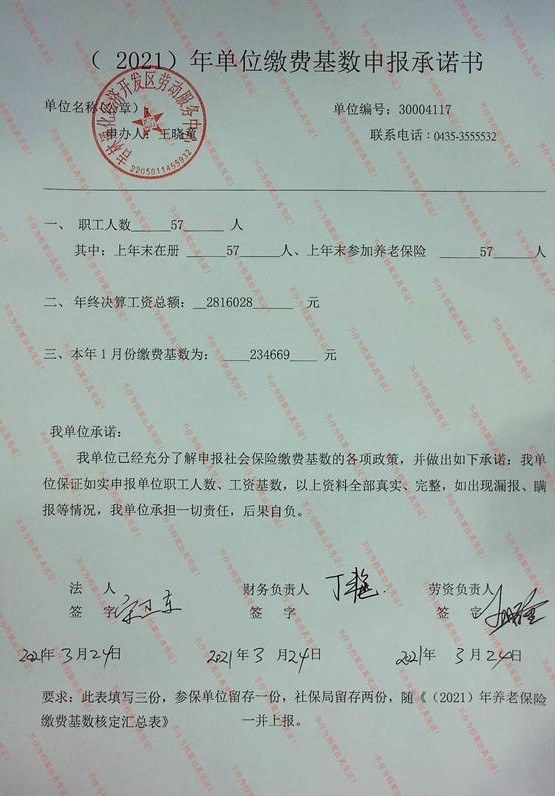 （ 2021）年单位缴费基数申报承诺书
单位名称（公章）： 单位编号：30004117
申办人：王晓童 联系电话：0435-3555532
2205011455932
一、 职工人数______57______ 人
其中：上年末在册 ______57______人、上年末参加养老保险 ______57______人
二、 年终决算工资总额：__2816028______ 元
三、本年 1 月份缴费基数为： ____234669____ 元
我单位承诺：
我单位已经充分了解申报社会保险缴费基数的各项政策，并做出如下承诺：我单
位保证如实申报单位职工人数、工资基数，以上资料全部真实、完整，如出现漏报、瞒
报等情况，我单位承担一切责任，后果自负。
法 人 财务负责人 丁艳 劳资负责人
签 字 签 字 签 字
2021年 3 月 24日 2021年 3 月 24日 2021年 3 月 24日
要求：此表填写三份，参保单位留存一份，社保局留存两份，随《（2021）年养老保险
缴费基数核定汇总表》 一并上报。